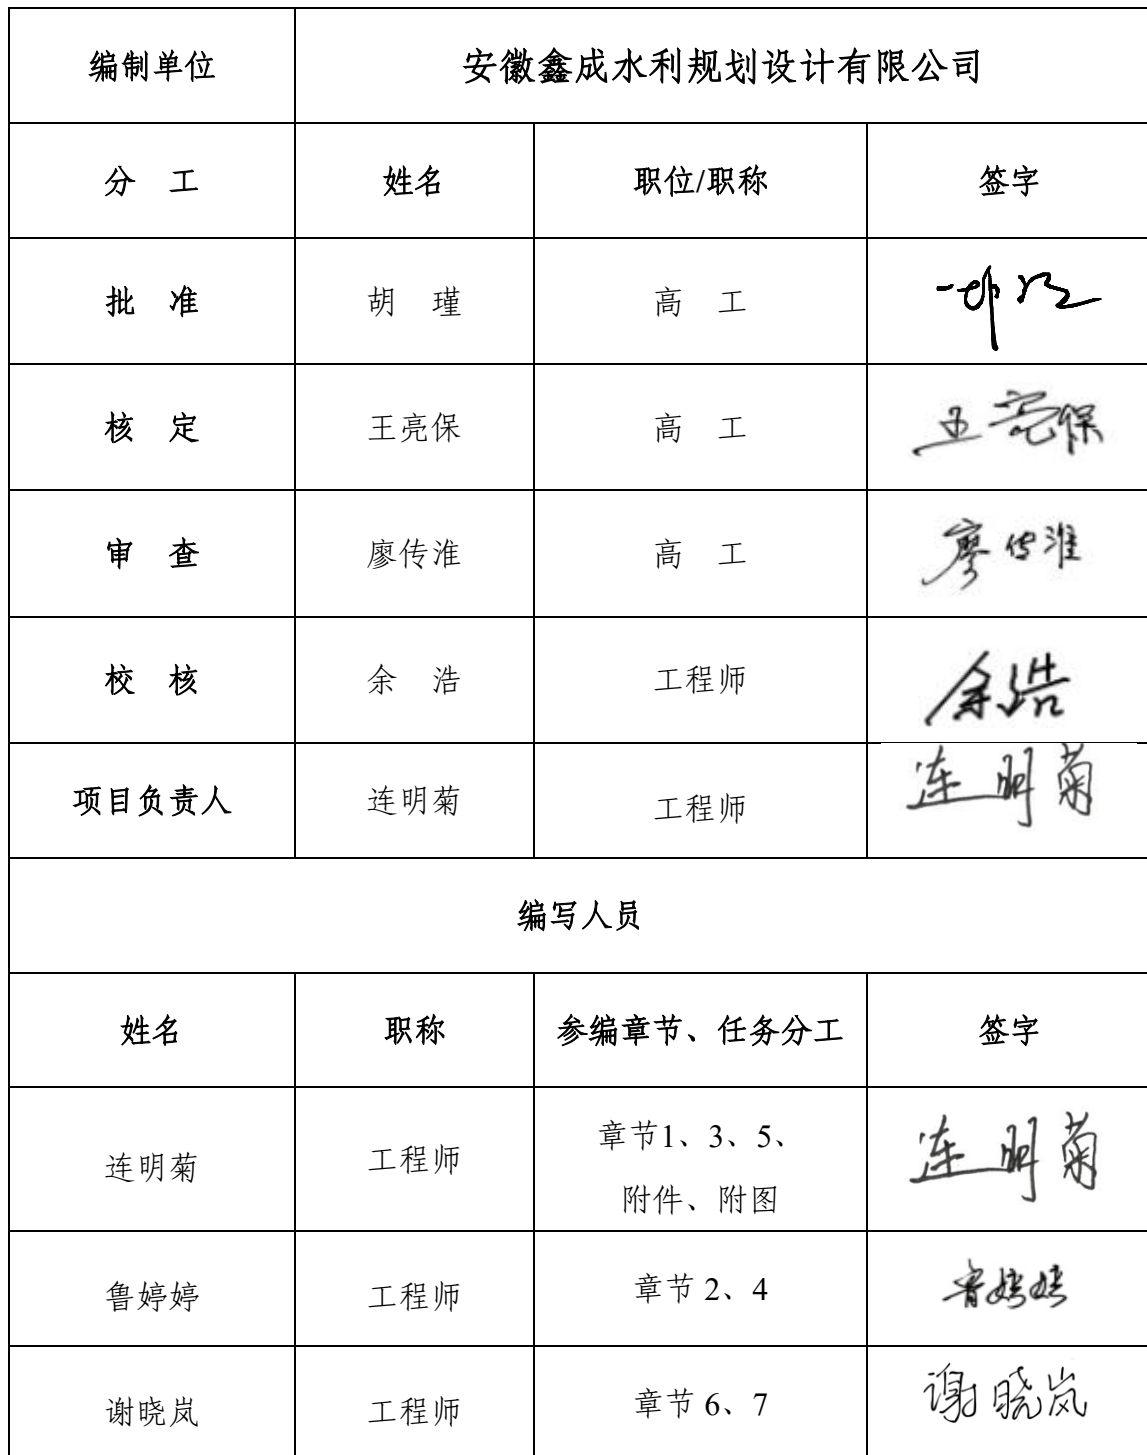 编制单位 安徽鑫成水利规划设计有限公司
分 工 姓名 职位/职称 签字
批 准 胡 瑾 高 工
核 定 王亮保 高 工 王亮保
审 查 廖传淮 高 工 廖传淮
校 核 余 浩 工程师 余浩
项目负责人 连明菊 工程师 连明菊
编写人员
姓名 职称 参编章节、任务分工 签字
连明菊 工程师 章节1、3、5、 连明菊
附件、附图
鲁婷婷 工程师 章节 2、4 鲁婷婷
谢晓岚 工程师 章节 6、7 谢晓岚